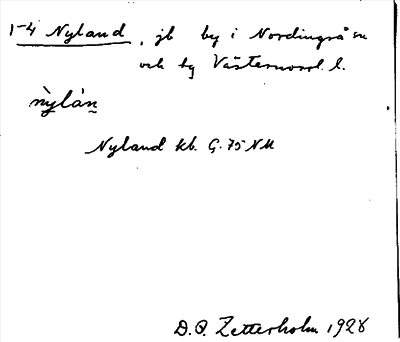 1-4 Nyland, jb by i Nordingrå sn
och by Västernorrl. l.
nỳlàn
Nyland kb. G. 75 NM
D.O. Zetterholm 1928